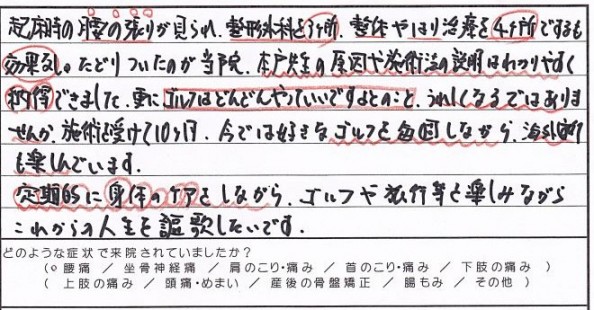 起床時の腰の張りが見られ、整形外科を3ヶ所、整体やはり治療を4ヶ所でするも
効果なし。たどりついたのが当院、木戸先生の原因や施術法の説明はわかりやすく
納得できました。更にゴルフはどんどんやっていいですよとのこと、うれしくなるではありま
せんか。施術を受けて10ヶ月、今では好きなゴルフを毎回しながら、海外旅行
も楽しんでいます。
定期的に身体のケアをしながら、ゴルフや旅行等を楽しみながら
これからの人生を謳歌したいです。
どのような症状で来院されていましたか？
（○腰痛 ／ 坐骨神経痛 ／ 肩のこり・痛み ／ 首のこり・痛み ／ 下肢の痛み ）
（ 上肢の痛み ／ 頭痛・めまい ／ 産後の骨盤矯正 ／ 腸もみ ／ その他 ）